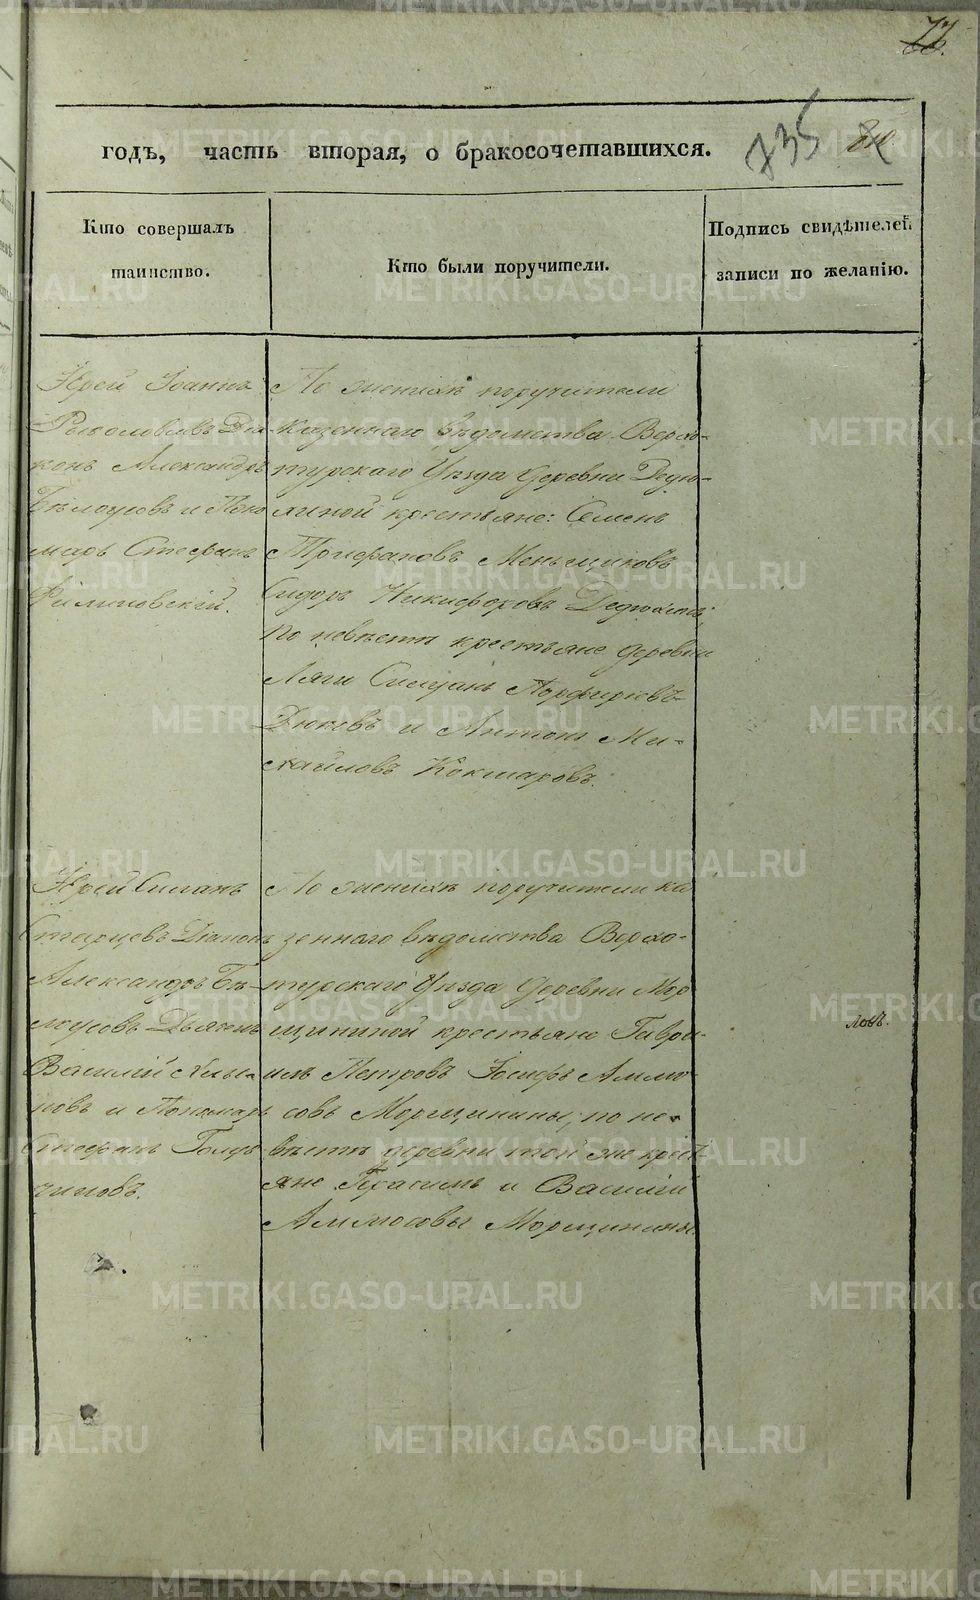 77
735
годъ, часть вторая, о бракосочетавшихся.
Кто совершалъ
таинство.
Кто были поручители.
Подпись свидѣтелей
записи по желанію.
Іерей Іоаннъ
Александръ
Бѣлоусовъ и Поно
марь Стефанъ
По женихѣ поручители
казеннаго вѣдомства Верхо-
турскаго Уѣзда деревни Дедю-
линой крестьяне: Семенъ
Трифановъ Меньщиковъ
Сидоръ Никифоровъ
по невѣстѣ крестьяне деревни
Ляги Силуанъ Порфирьевъ
Дюковъ и Антонъ Ми-
хайловъ Кокшаровъ.
Іерей Симанъ
Старцевъ Діаконъ
Александръ Бѣ-
лоусовъ Дьячекъ
Василій
новъ и Пономарь
Стефанъ
По женихѣ поручители ка
зеннаго вѣдомства Верхо-
турскаго Уѣзда деревни Мор
щининой крестьяне Гаври-
илъ Петровъ Іосифъ Аммо
совъ Морщинины; по не-
вѣстѣ деревни той же крест
яне Герасимъ и Василій
Аммосовы Морщинины.
ловъ.
METRIKI.GASO-URAL.RU